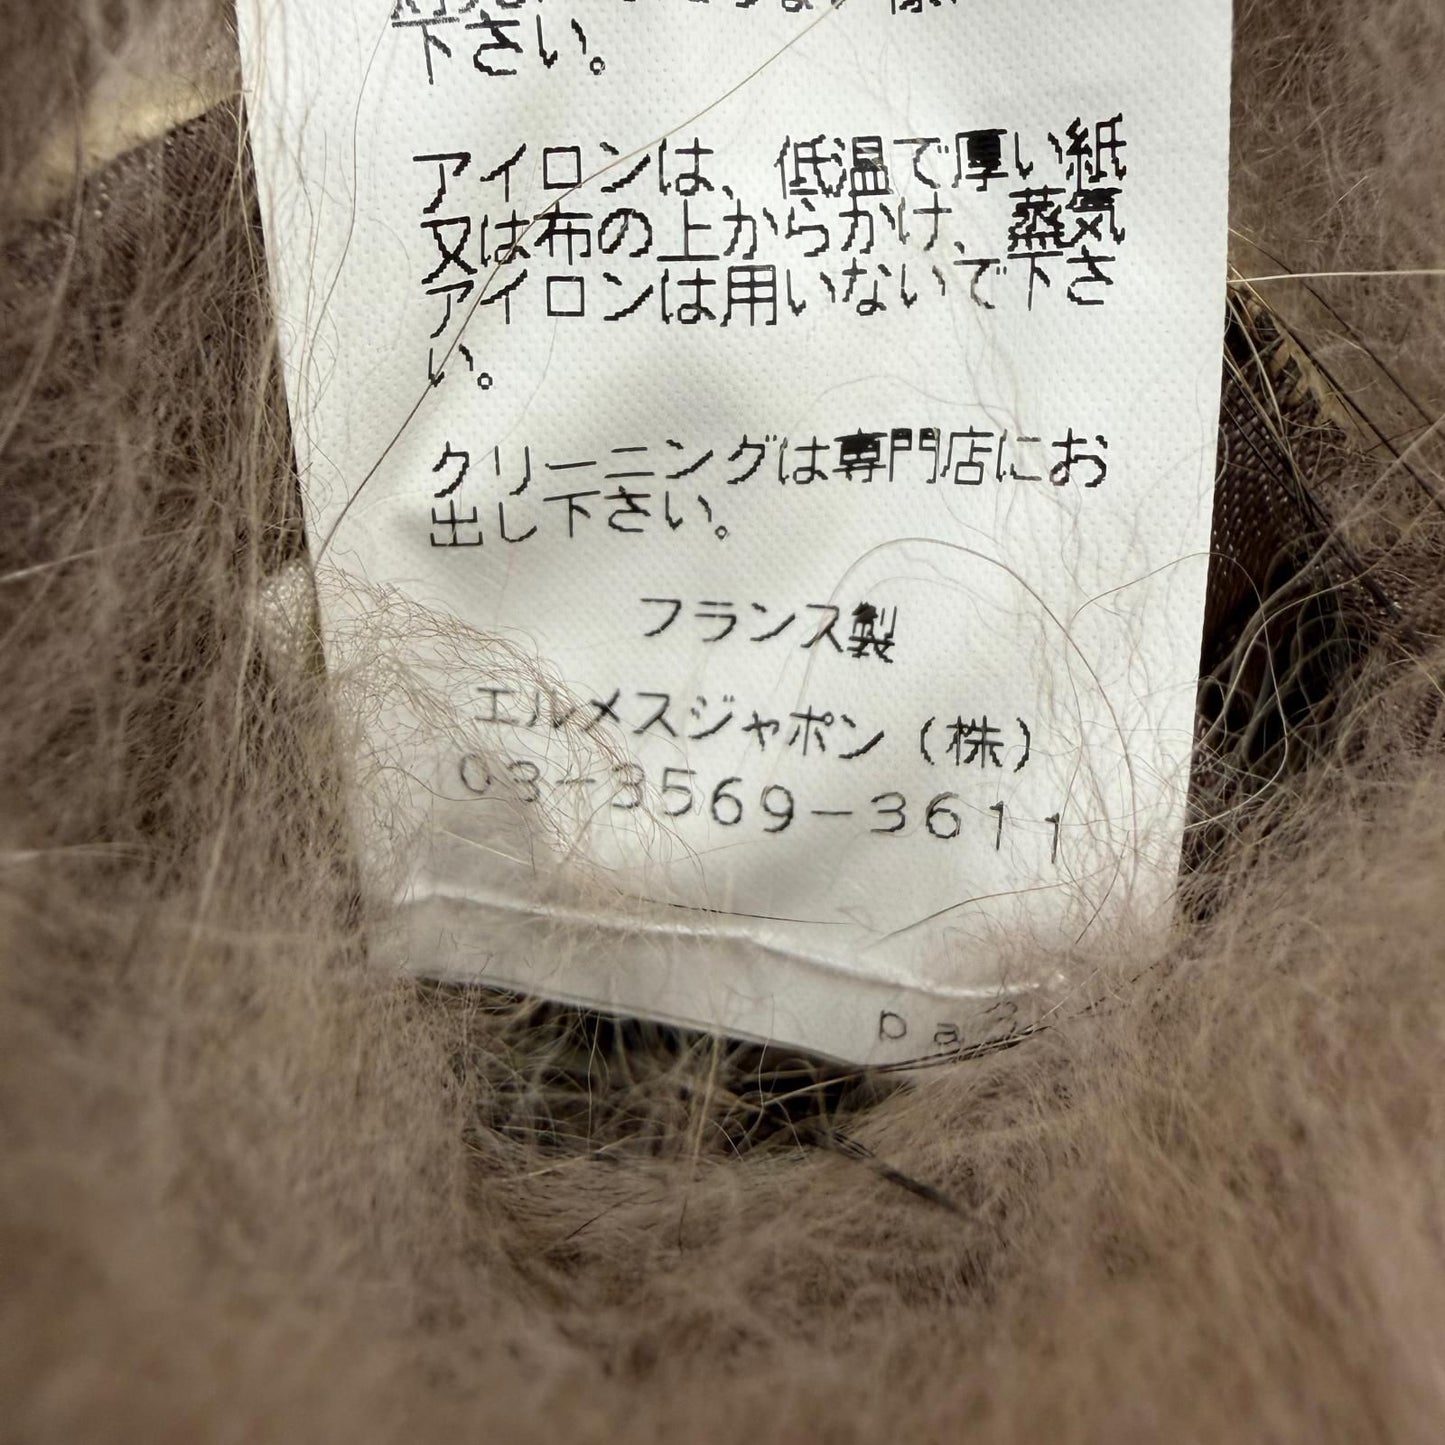 下さい。
アイロンは、低温で厚い紙
又は布の上からかけ、蒸気
アイロンは用いないで下さ
い。
クリーニングは専門店にお
出し下さい。
フランス製
エルメスジャポン（株）
03-3569-3611